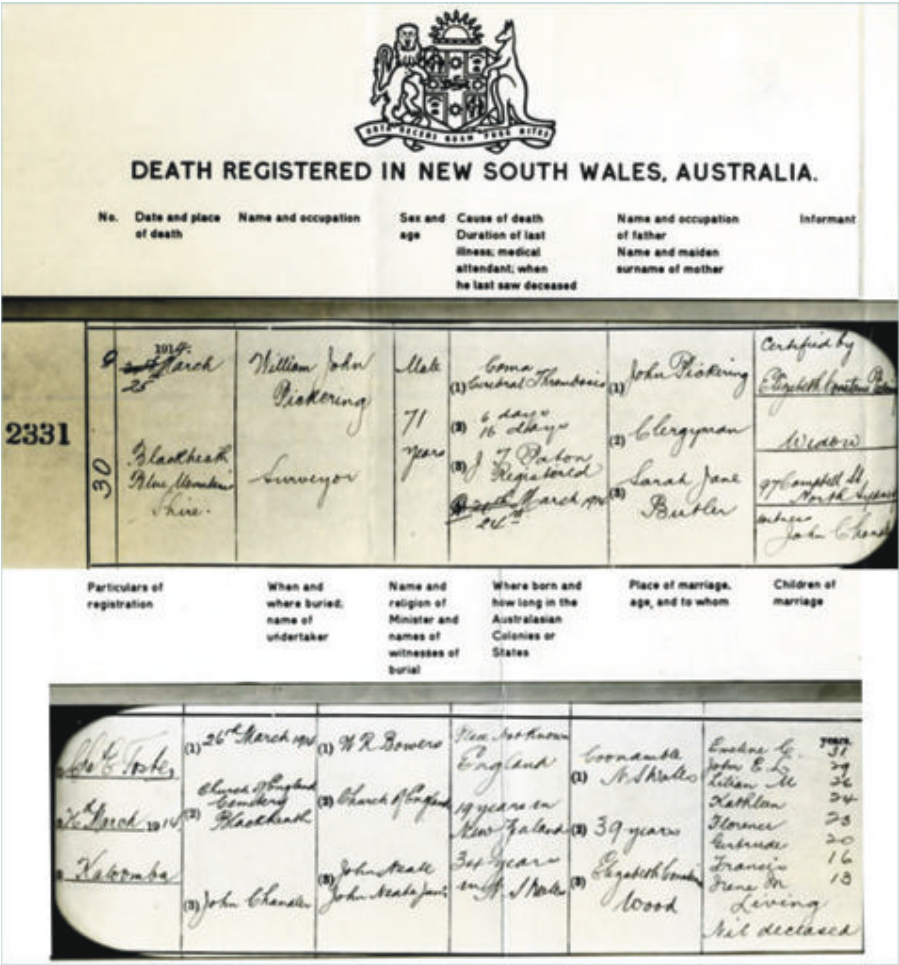 DEATH REGISTERED IN NEW SOUTH WALES, AUSTRALIA.
No.
Date and place
of death
Name and occupation
Sex and
age
Cause of death
Duration of last
illness; medical
attendant; when
he last saw deceased
Name and occupation
of father
Name and maiden
surname of mother
Informant
2331
30
1914.
March
25
Blackheath
Blue Mountains
Shire.
William John
Pickering
Surveyor
Male
71
years
Coma
(1) Cerebral Thrombosis
(2) 6 days
16 days
(3) J Paton
Registered
March 1914
24th
(1) John Pickering
(2) Clergyman
(3) Sarah Jane
Butler
Certified by
Elizabeth
Widow
97 Campbell St
North Sydney
witness
John
Particulars of
registration
When and
where buried;
name of
undertaker
Name and
religion of
Minister and
names of
witnesses of
burial
Where born and
how long in the
Australasian
Colonies or
States
Place of marriage,
age, and to whom
Children of
marriage
March 1914
Katoomba
(1) 26th March 1914
(2) Church of England
Cemetery
Blackheath
(3) John Chandler
(1) W R Bowers
(2) Church of England
(3) John Neate
John Neate
Not Known
England
19 years in
New Zealand
34 years
in N. S Wales
Coonamble
(1) N S Wales
(2) 39 years
(3) Elizabeth
Wood
years.
Eveline C. 31
John E. L. 29
Lilian M 26
Kathleen 24
Florence 23
Gertrude 20
Francis 16
Irene M 13
Living
Nil deceased